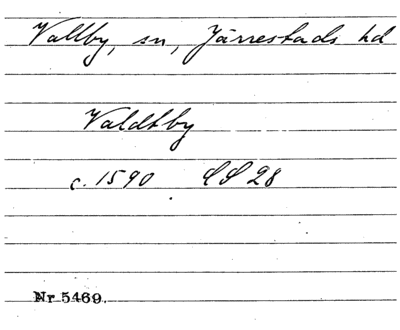 Vallby, sn, Järrestads hd
Valdtby
c. 1590 LS 28
Nr 5469.